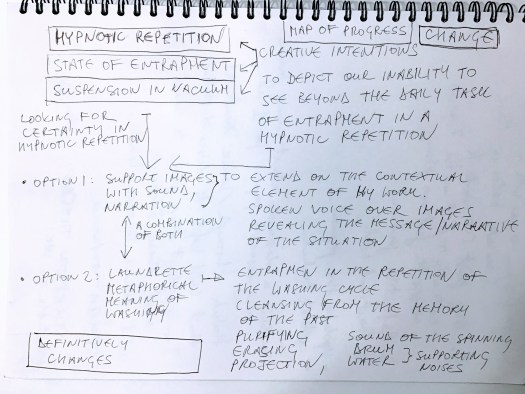 HYPNOTIC REPETITION
MAP OF PROGRESS
CHANGE
STATE OF ENTRAPMENT
CREATIVE INTENTIONS
SUSPENSION IN VACUUM
TO DEPICT OUR INABILITY TO
SEE BEYOND THE DAILY TASK
OF ENTRAPMENT IN A
HYPNOTIC REPETITION
LOOKING FOR
CERTAINTY IN
HYPNOTIC REPETITION
• OPTION 1: SUPPORT IMAGES
WITH SOUND,
NARRATION
TO EXTEND ON THE CONTEXTUAL
ELEMENT OF MY WORK.
SPOKEN VOICE OVER IMAGES
REVEALING THE MESSAGE/NARRATIVE
OF THE SITUATION
A COMBINATION
OF BOTH
• OPTION 2: LAUNDRETTE
METAPHORICAL
MEANING OF
WASHING
ENTRAPMEN IN THE REPETITION OF
THE WASHING CYCLE
CLEANSING FROM THE MEMORY
OF THE PAST
PURIFYING
ERASING
PROJECTION,
SOUND OF THE SPINNING
DRUM
WATER
SUPPORTING
NOISES
DEFINITIVELY
CHANGES